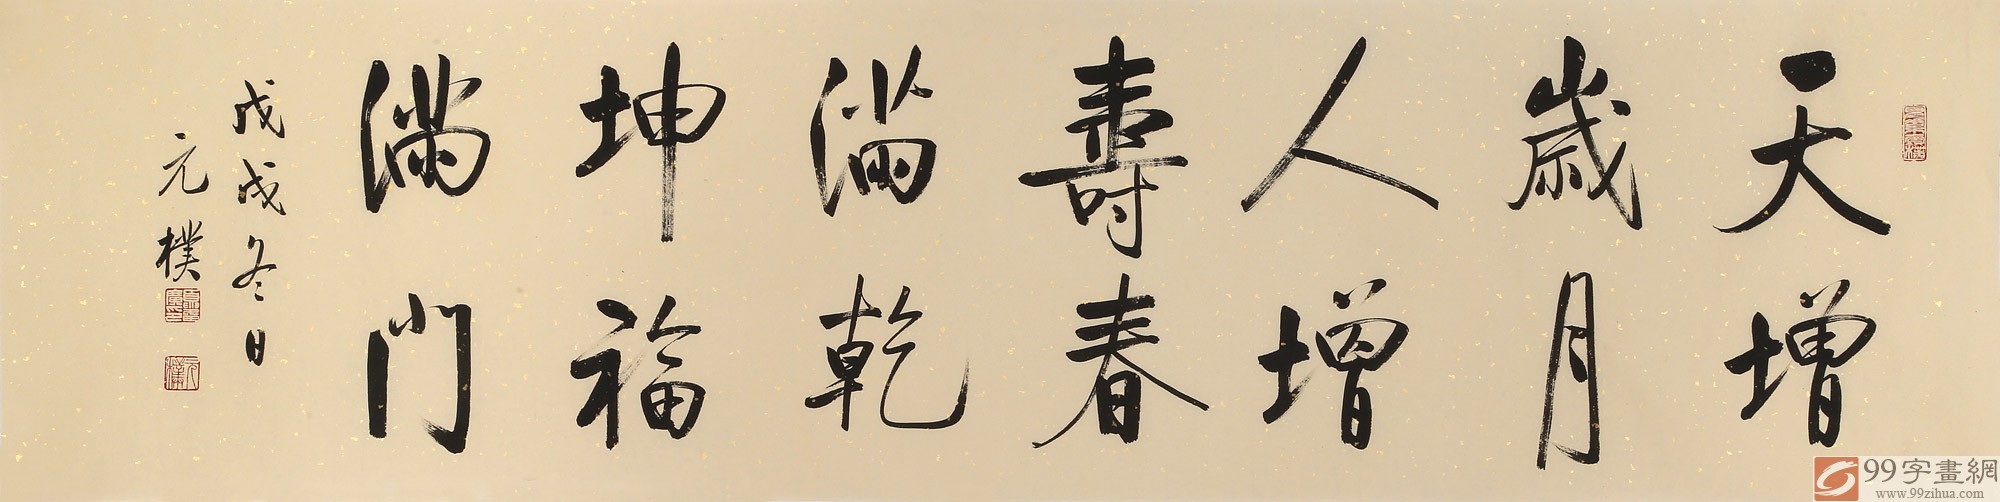 天增
歲月
人增
壽春
滿乾
坤福
滿門
戊戌冬日
元樸
99字畫網
www.99zihua.com